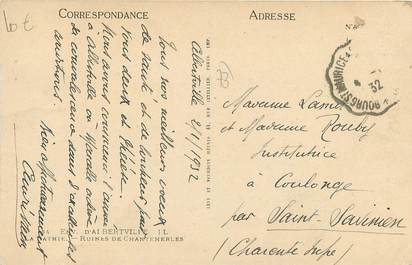 CORRESPONDANCE
ADRESSE
Albertville 2/1/1932
Tous nos meilleurs voeux
de santé et de bonheur pour
vous deux et Thérèse.
Nous avons commencé l'année
à Albertville où Marcelle achève
sa convalescence dans d'excellentes
conditions
Bien affectueusement
ENV. D'ALBERTVILLE
LA BATHIE - RUINES DE CHANTEMERLES
BOURG ST MAURICE
32
Madame
et Madame Rouby
Institutrice
à Coulonge
par Saint-Savinien
(Charente Infre)